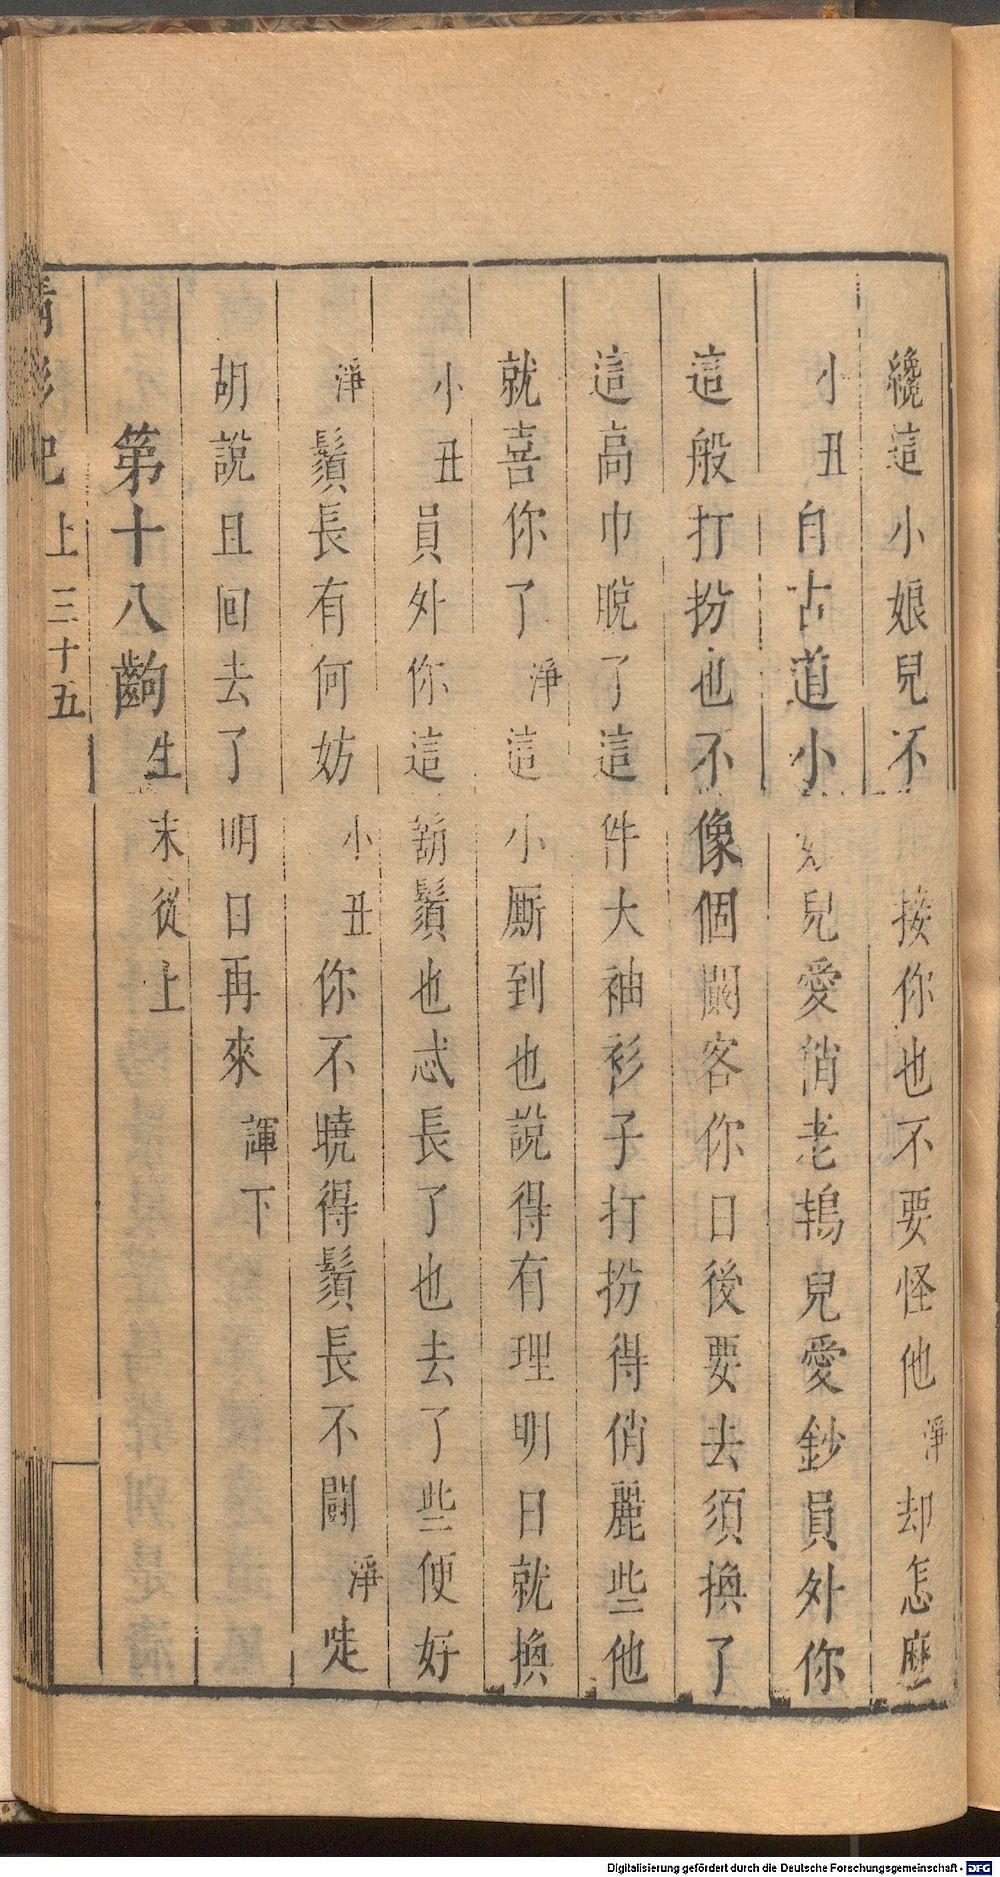 纔這小娘兒不接你也不要怪他淨却怎麽
小丑自古道小女兒愛俏老鴇兒愛鈔員外你
這般打扮也不像個闝客你日後要去須換了
這高巾晚了這件大袖衫子打扮得俏麗些他
就喜你了淨這小厮到也說得有理明日就換
小丑員外你這鬍鬚也忒長了也去了些便好
淨鬚長有何妨小丑你不曉得鬚長不闘淨唗
胡說且回去了明日再來諢下
第十八齣生末從上
記上三十五
Digitalisierung gefördert durch die Deutsche Forschungsgemeinschaft - DFG